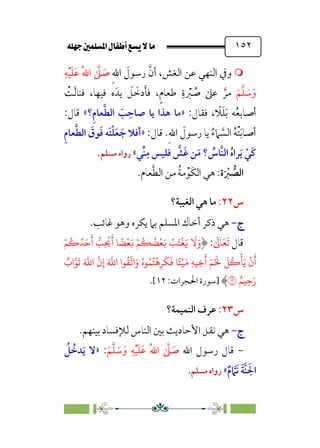 ما لا يسع أطفال المسلمين جهله
١٥٢
وفي النهي عن الغش، أنَّ رسولَ اللهِ صَلَّىٰ اللهُ عَلَيْهِ
وَسَلَّمَ مرَّ على صُبْرَةِ طعامٍ، فأَدخَلَ يدَه فيها، فنالَتْ
أصابعُه بَلَلًا، فقال: «ما هذا يا صاحِبَ الطَّعامِ؟» قال:
أصابَتْهُ السَّماءُ يا رسولَ اللهِ. قال: «أفلا جَعَلْتَه فَوقَ الطَّعامِ
كَيْ يَراهُ النَّاسُ؟ مَن غَشَّ فليس مِنِّي» رواه مسلم.
الصُّبْرَة: هي الكَوْمةُ من الطَّعام.
س٢٢: ما هي الغيبة؟
ج- هي ذكر أخاك المسلم بما يكره وهو غائب.
قال تَعَالَىٰ: ﴿وَلَا يَغْتَب بَّعْضُكُم بَعْضًا أَيُحِبُّ أَحَدُكُمْ
أَن يَأْكُلَ لَحْمَ أَخِيهِ مَيْتًا فَكَرِهْتُمُوهُ وَاتَّقُوا اللَّهَ إِنَّ اللَّهَ تَوَّابٌ
رَّحِيمٌ ١٢﴾ [سورة الحجرات: ١٢].
س٢٣: عرف النميمة؟
ج- هي نقل الأحاديث بين الناس للإفساد بينهم.
- قال رسول الله صَلَّىٰ اللهُ عَلَيْهِ وَسَلَّمَ: «لا يَدخُلُ
الجَنَّةَ نَمَّامٌ» رواه مسلم.